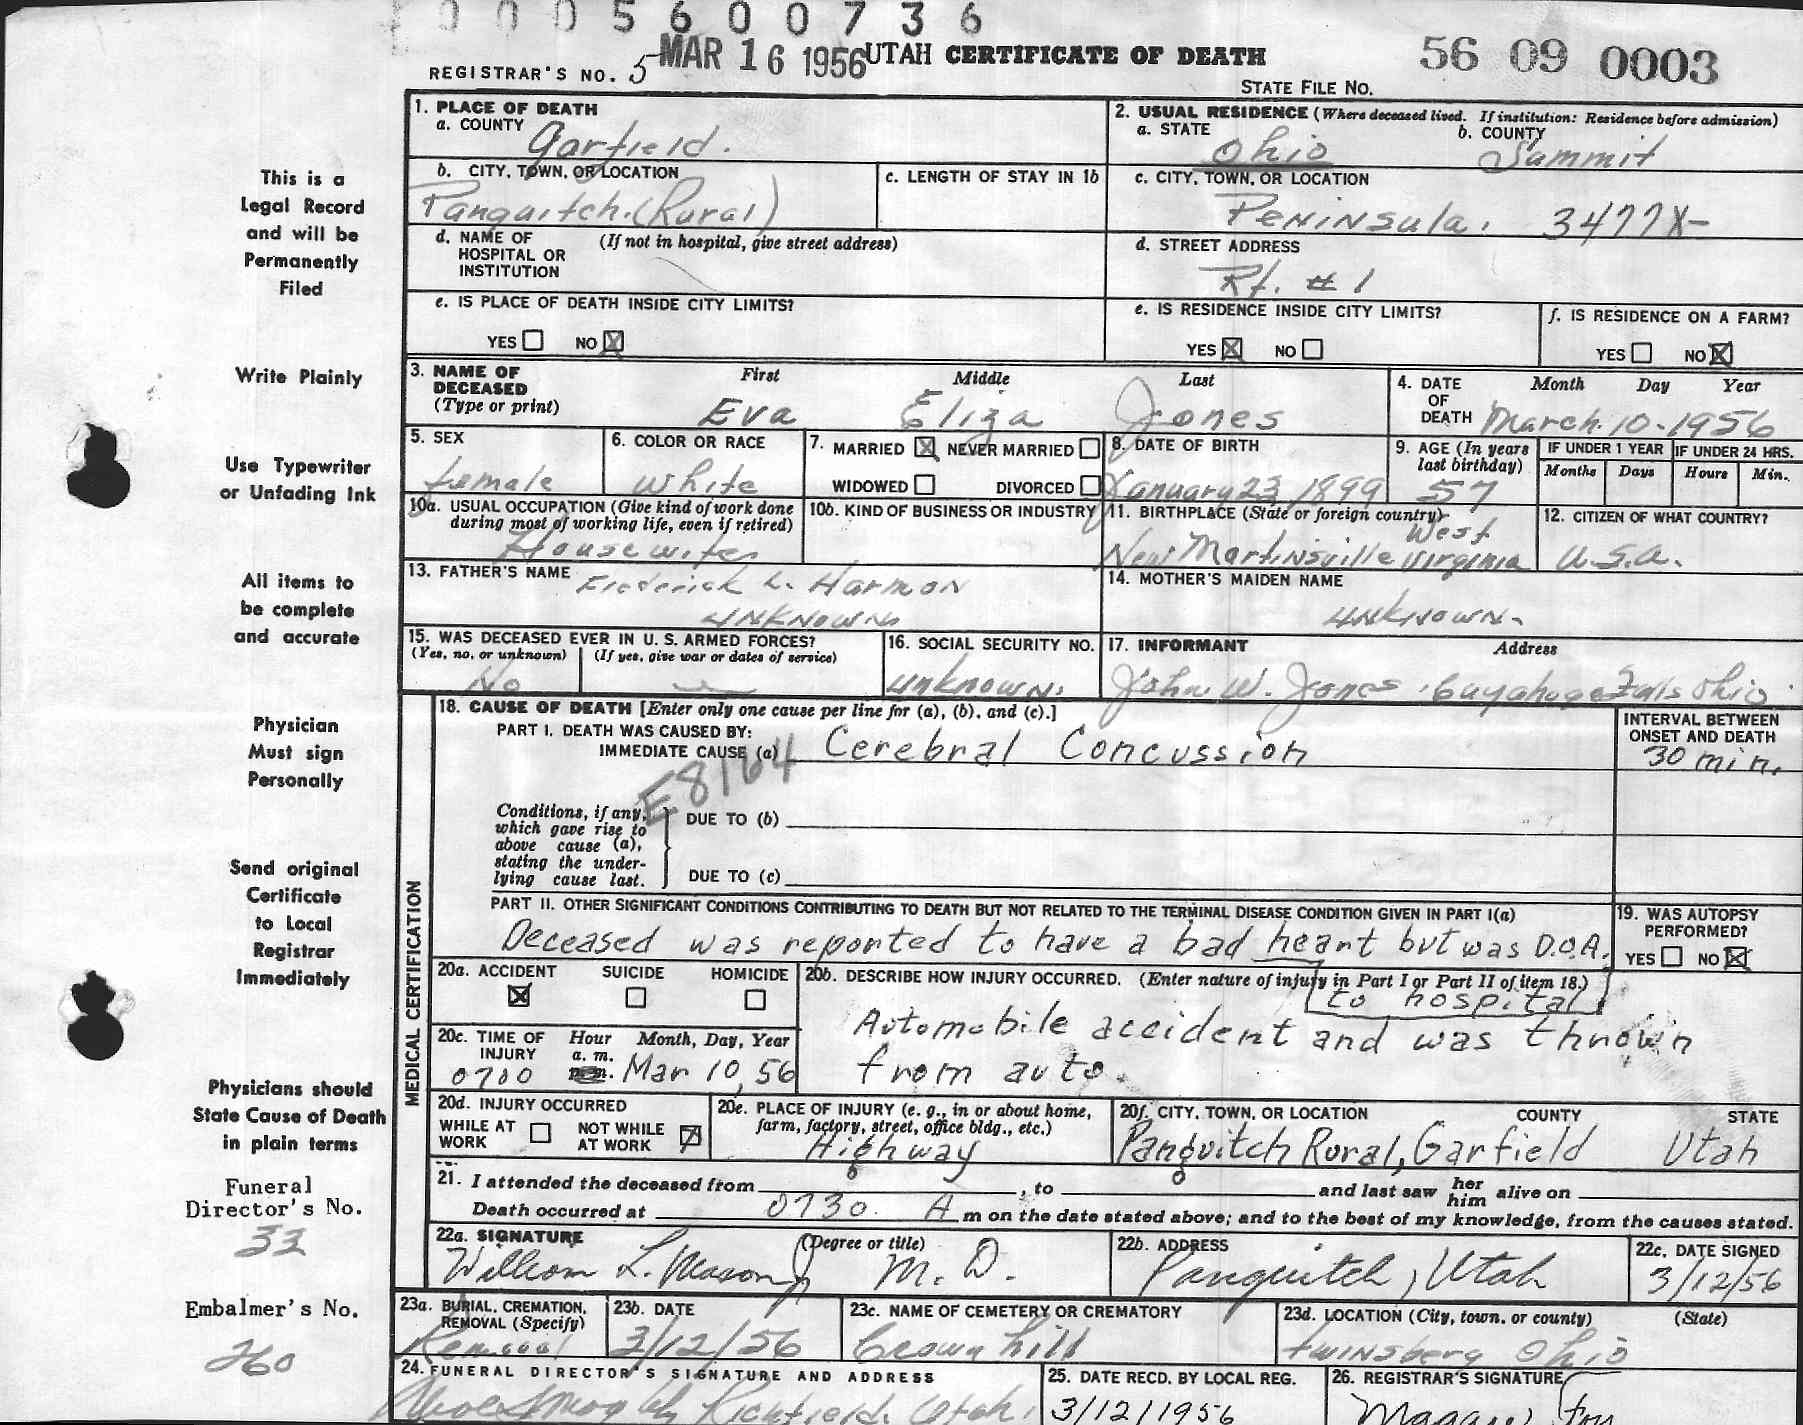 0 0 0 5 6 0 0 7 3 6
REGISTRAR'S NO. 5 MAR 16 1956 UTAH CERTIFICATE OF DEATH 56 09 0003
STATE FILE NO.
1. PLACE OF DEATH
a. COUNTY Garfield.
2. USUAL RESIDENCE (Where deceased lived. If institution: Residence before admission)
a. STATE Ohio b. COUNTY Summit
b. CITY, TOWN, OR LOCATION Panguitch. (Rural)
c. LENGTH OF STAY IN 1b
c. CITY, TOWN, OR LOCATION
Peninsula. 3477X-
d. NAME OF HOSPITAL OR INSTITUTION (If not in hospital, give street address)
d. STREET ADDRESS
Rt. # 1
e. IS PLACE OF DEATH INSIDE CITY LIMITS?
YES NO X
e. IS RESIDENCE INSIDE CITY LIMITS?
YES X NO
f. IS RESIDENCE ON A FARM?
YES NO X
3. NAME OF DECEASED (Type or print)
First Middle Last
Eva Eliza Jones
4. DATE OF DEATH Month Day Year
March. 10. 1956
5. SEX
female
6. COLOR OR RACE
white
7. MARRIED X NEVER MARRIED
WIDOWED DIVORCED
8. DATE OF BIRTH
January 23, 1899
9. AGE (In years last birthday)
57
IF UNDER 1 YEAR IF UNDER 24 HRS.
Months Days Hours Min.
10a. USUAL OCCUPATION (Give kind of work done during most of working life, even if retired)
Housewife
10b. KIND OF BUSINESS OR INDUSTRY
11. BIRTHPLACE (State or foreign country)
New Martinsville West Virginia
12. CITIZEN OF WHAT COUNTRY?
U.S.A.
13. FATHER'S NAME Frederick L. Harmon
unknown
14. MOTHER'S MAIDEN NAME
unknown.
15. WAS DECEASED EVER IN U. S. ARMED FORCES?
(Yes, no, or unknown) (If yes, give war or dates of service)
No
16. SOCIAL SECURITY NO.
unknown.
17. INFORMANT Address
John W. Jones. Cuyahoga Falls Ohio
18. CAUSE OF DEATH [Enter only one cause per line for (a), (b), and (c).]
PART I. DEATH WAS CAUSED BY:
IMMEDIATE CAUSE (a) Cerebral Concussion
INTERVAL BETWEEN ONSET AND DEATH
30 min.
E8164
Conditions, if any, which gave rise to above cause (a), stating the underlying cause last.
DUE TO (b)
DUE TO (c)
PART II. OTHER SIGNIFICANT CONDITIONS CONTRIBUTING TO DEATH BUT NOT RELATED TO THE TERMINAL DISEASE CONDITION GIVEN IN PART I(a)
Deceased was reported to have a bad heart but was D.O.A. to hospital
19. WAS AUTOPSY PERFORMED?
YES NO X
20a. ACCIDENT SUICIDE HOMICIDE
X
20b. DESCRIBE HOW INJURY OCCURRED. (Enter nature of injury in Part I or Part II of item 18.)
Automobile accident and was thrown
from auto.
20c. TIME OF INJURY Hour Month, Day, Year
0700 a. m. Mar 10, 56
20d. INJURY OCCURRED
WHILE AT WORK NOT WHILE AT WORK X
20e. PLACE OF INJURY (e. g., in or about home, farm, factory, street, office bldg., etc.)
Highway
20f. CITY, TOWN, OR LOCATION COUNTY STATE
Panguitch Rural, Garfield Utah
21. I attended the deceased from , to and last saw her him alive on
Death occurred at 0730 A m on the date stated above; and to the best of my knowledge, from the causes stated.
22a. SIGNATURE (Degree or title)
William L. Mason M. D.
22b. ADDRESS
Panguitch, Utah
22c. DATE SIGNED
3/12/56
23a. BURIAL, CREMATION, REMOVAL (Specify)
Removal
23b. DATE
3/12/56
23c. NAME OF CEMETERY OR CREMATORY
Crown hill
23d. LOCATION (City, town. or county) (State)
twinsberg Ohio
24. FUNERAL DIRECTOR'S SIGNATURE AND ADDRESS
Richfield. Utah.
25. DATE RECD. BY LOCAL REG.
3/12/1956
26. REGISTRAR'S SIGNATURE
MEDICAL CERTIFICATION
This is a
Legal Record
and will be
Permanently
Filed
Write Plainly
Use Typewriter
or Unfading Ink
All items to
be complete
and accurate
Physician
Must sign
Personally
Send original
Certificate
to Local
Registrar
Immediately
Physicians should
State Cause of Death
in plain terms
Funeral
Director's No.
33
Embalmer's No.
260